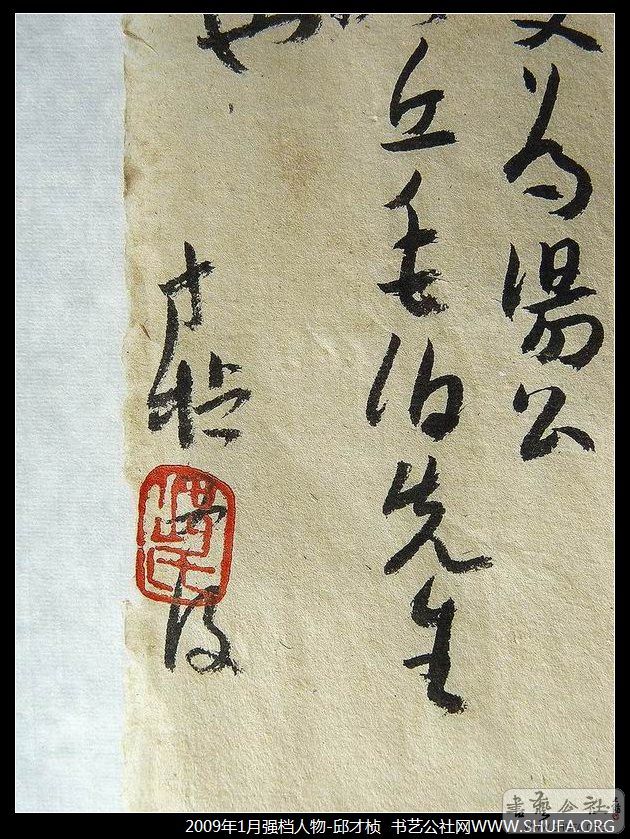 為湯公
丘毛伯先生
才楨
及
書藝公社
2009年1月强档人物-邱才桢 书艺公社网WWW.SHUFA.ORG